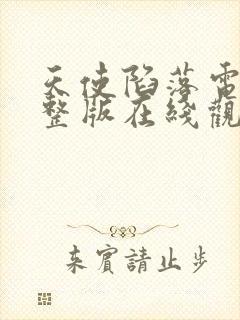 天使陷落電
整版在綫觀
来賓請止步